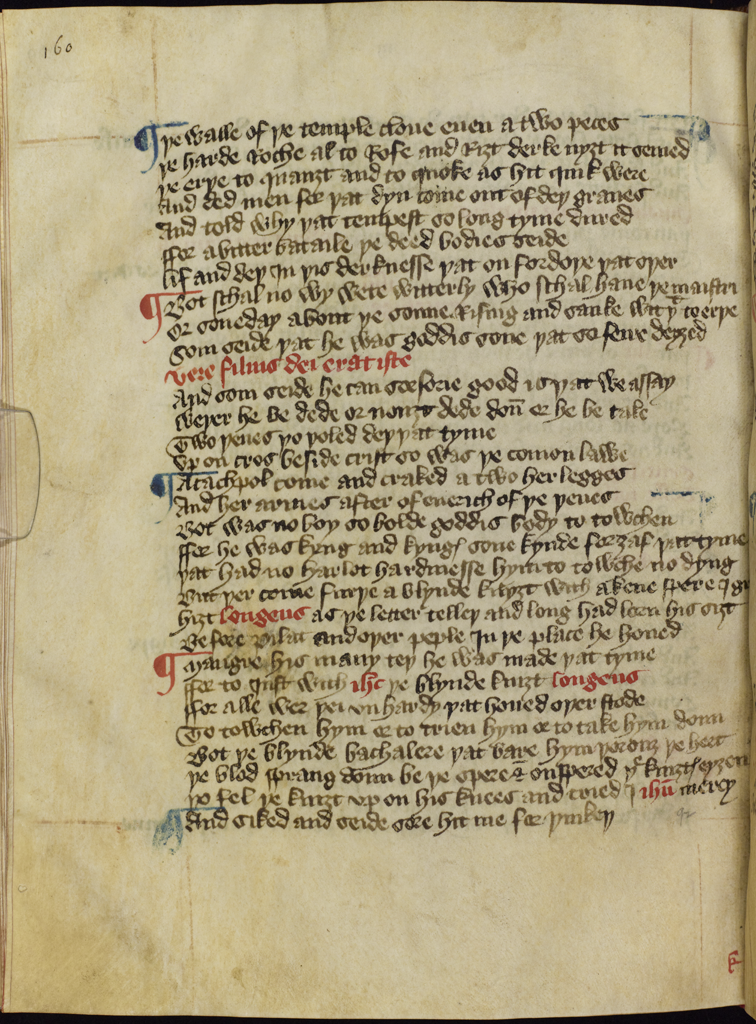 160
¶ þe walle of þe temple cloue euen a two peces
þe harde roche al to rofe and riȝt derke nyȝt it semed
þe erþe to quaȝt and to quoke as hit quik were
And ded men for þat dyn come out of dep graues
And told why þat tempest so long tyme dured
ffor a bitter bataile þe deed bodies seide
lif and deþ In þis derknesse þat on fordoþe þat oþer
¶ Bot schal no wy wete witterly who schal haue þe maistri
Or soneday about þe sonne rising and sanke wiþ to erþe
Som seide þat he was goddis sone þat so feire deyȝed
vere filius dei erat iste
And som seide he can sorserie good is þat we assay
weþer he be dede or nouȝt dede doun er he be take
Two þeues þo þoled deþ þat tyme
Vp on cros beside crist so was þe comon lawe
¶ A cachpol come and craked a two her legges
And her armes after of euerich of þe þeues
Bot was no boy so bolde goddis body to towchen
ffor he was kyng and kynges sone kynde forȝaf þat tyme
þat had no harlot hardinesse hym to towche no dyng
But þer come furþe a blynde knyȝt with a kene spere
hiȝt longeus as þe letter telleþ and long had lorn his siȝt
Before pilat and oþer peple In þe place he houed
¶ Maugre his many teþ he was made þat tyme
ffor to Just with ihc þe blynde knyȝt longeus
ffor alle wer þei vn hardy þat houed oþer stode
To towchen hym or to trien hym or to take hym doun
Bot þe blynde bachalere þat bare hym þorouȝ þe hert
þe blod sprang doun be þe spere & onspered þe knyȝtes eyȝen
þo fel þe knyȝt vp on his knees and cried ihu mercy
¶ And siked and seide sore hit me for þinkeþ